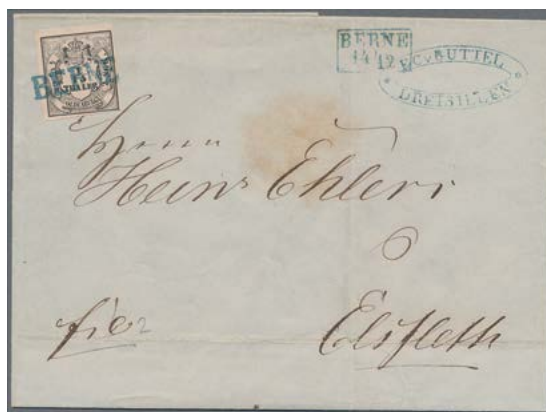 BERNE
BERNE
14/12
C. v. BUTTEL
DREISIELEN
Herrn
Heinr Ehlers
Elsfleth